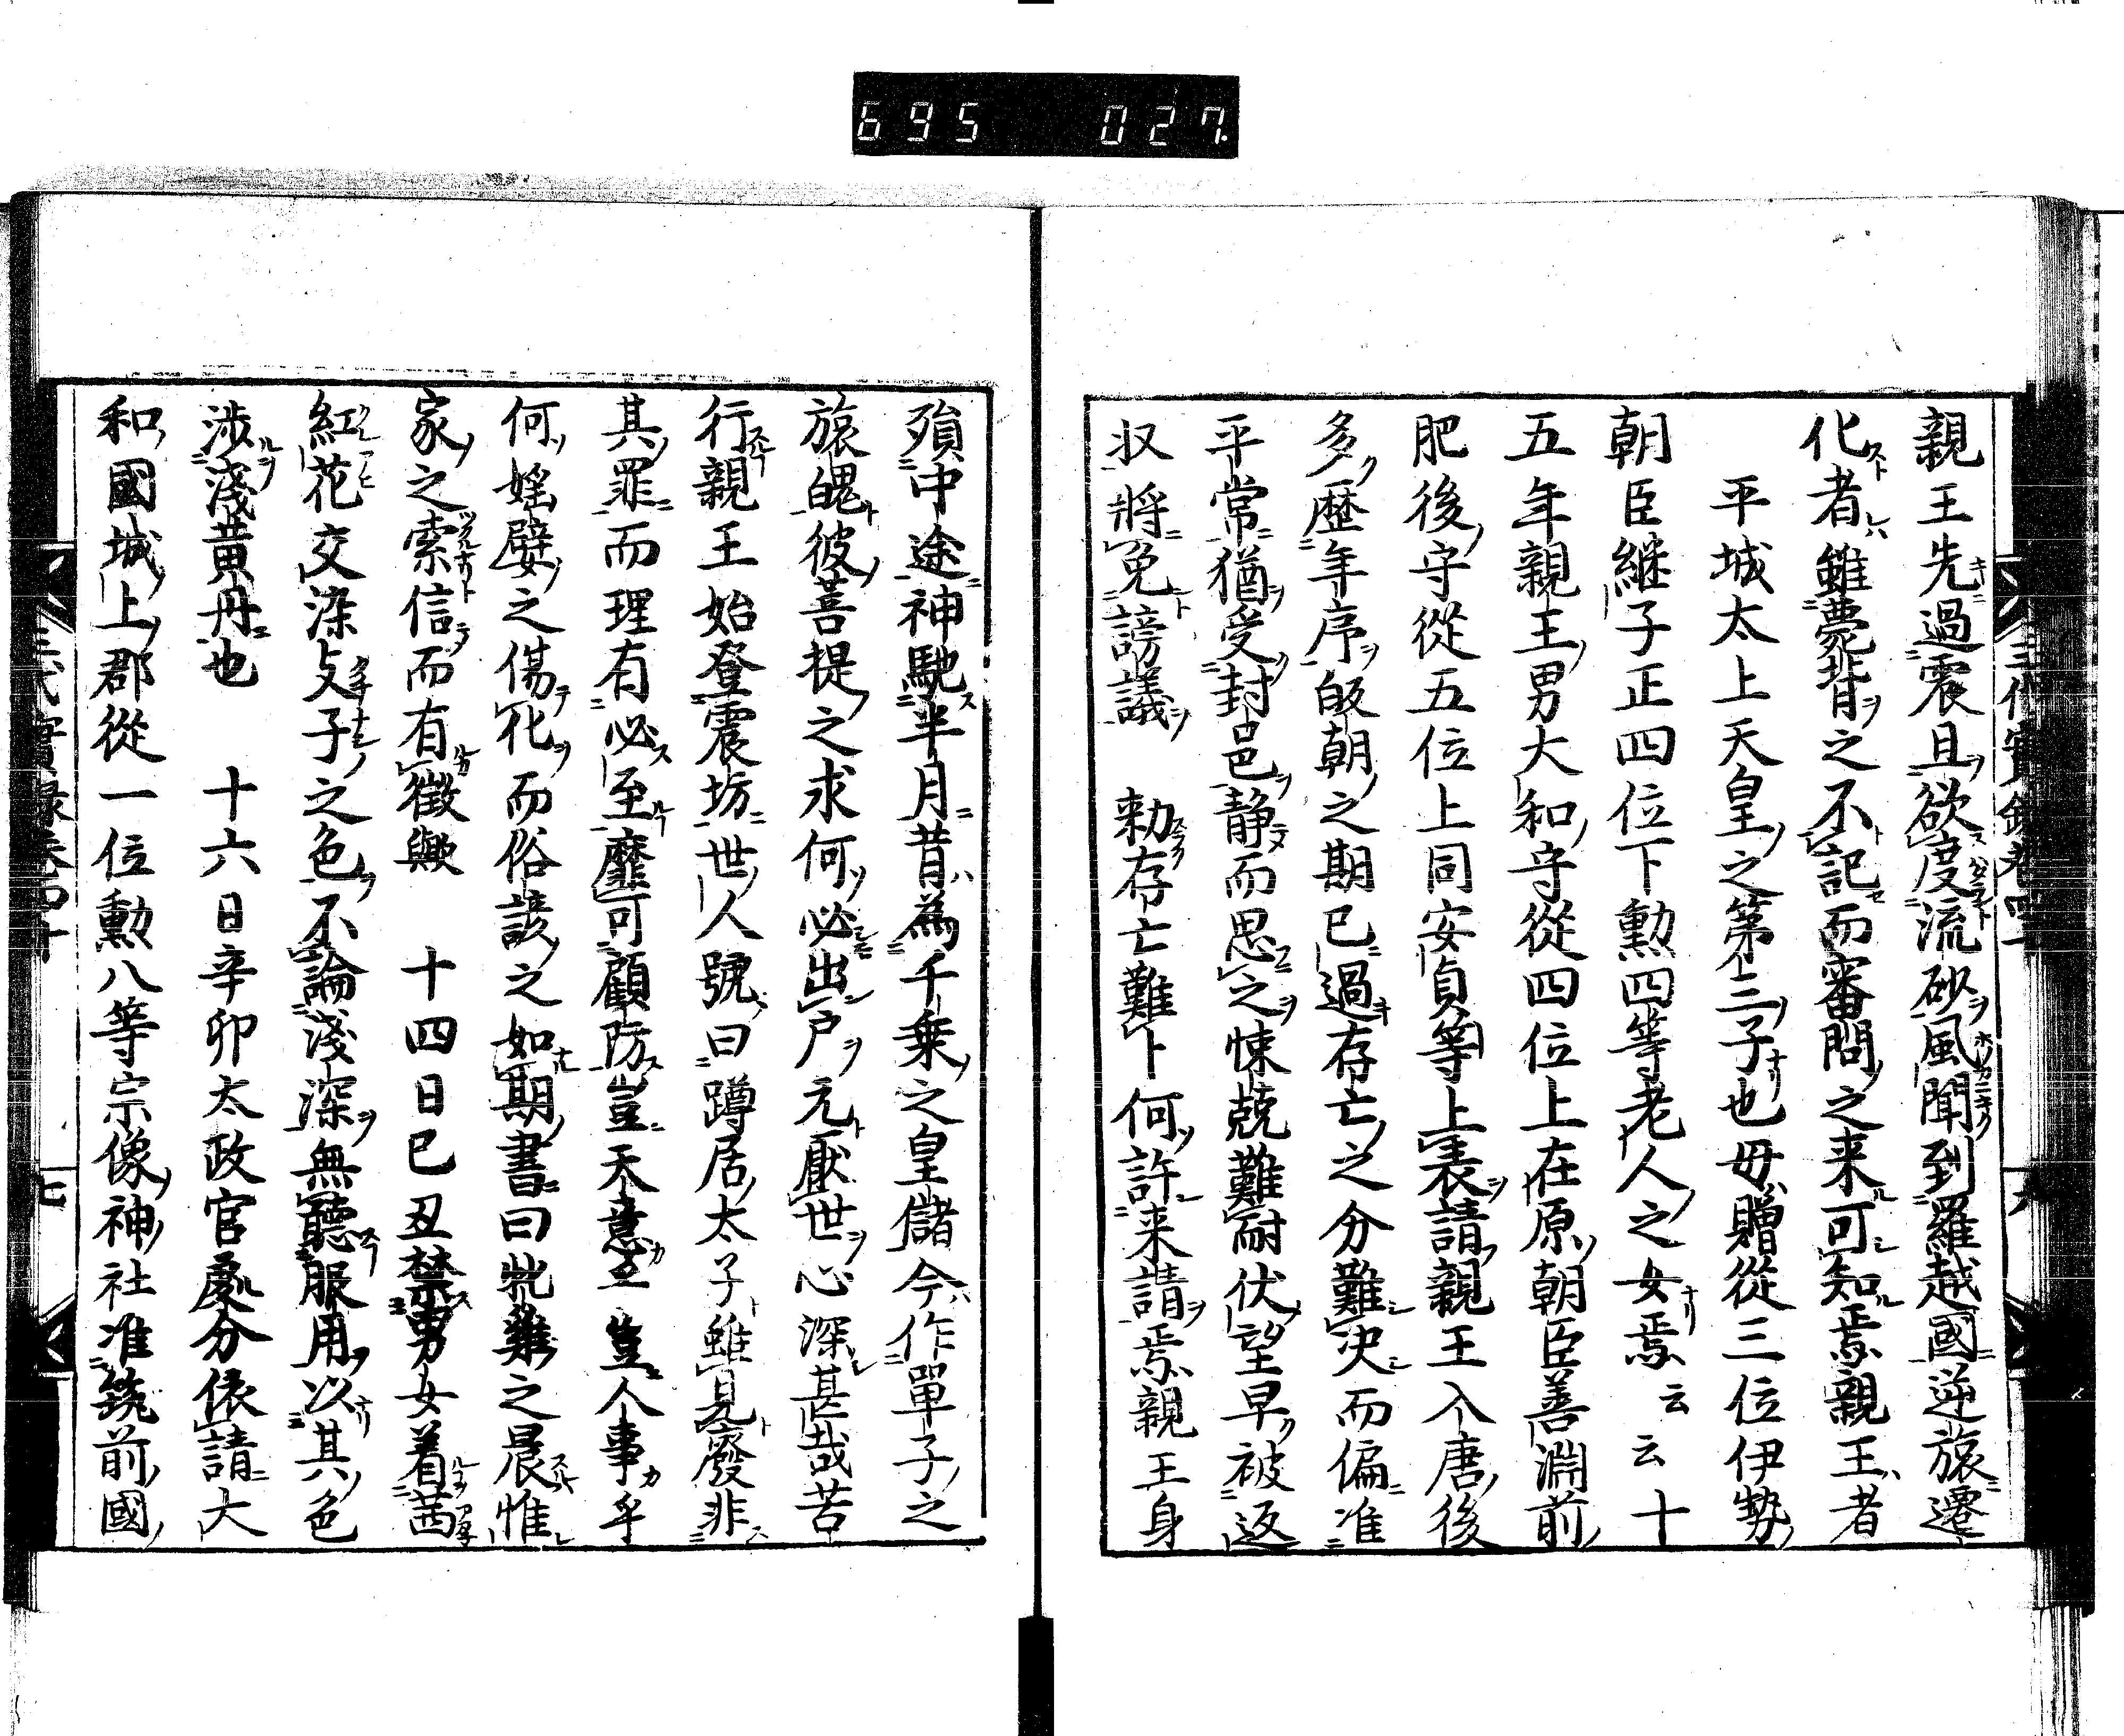 695 027
親王先過震旦欲度流砂風聞到羅越國逆旅遷
化者雖薨背之不記而審問之来可知焉親王者
平城太上天皇之第三子也母贈從三位伊勢
朝臣継子正四位下勲四等老人之女焉云云十
五年親王男大和守從四位上在原朝臣善淵前
肥後守從五位上同安貞等上表請親王入唐後
多歴年序皈朝之期已過存亡之分難決而偏准
平常猶受封邑静而思之悚兢難耐伏望早被返
収將免謗議 勅存亡難卜何許来請焉親王身
殞中途神馳半月昔為千乗之皇儲今作單子之
旅魄彼菩提之求何必出戸元厭世心深甚哉苦
行親王始登震坊世人號曰蹲居太子雖見廢非
其罪而理有必至靡可顧防豈天意乎豈人事乎
何婬嬖之傷化而俗諺之如期書曰牝雞之晨惟
家之索信而有徴歟 十四日己丑禁男女着茜
紅花交染支子之色不論淺深無聽服用以其色
渉淺黄丹也 十六日辛卯太政官處分依請大
和國城上郡從一位勲八等宗像神社准筑前國